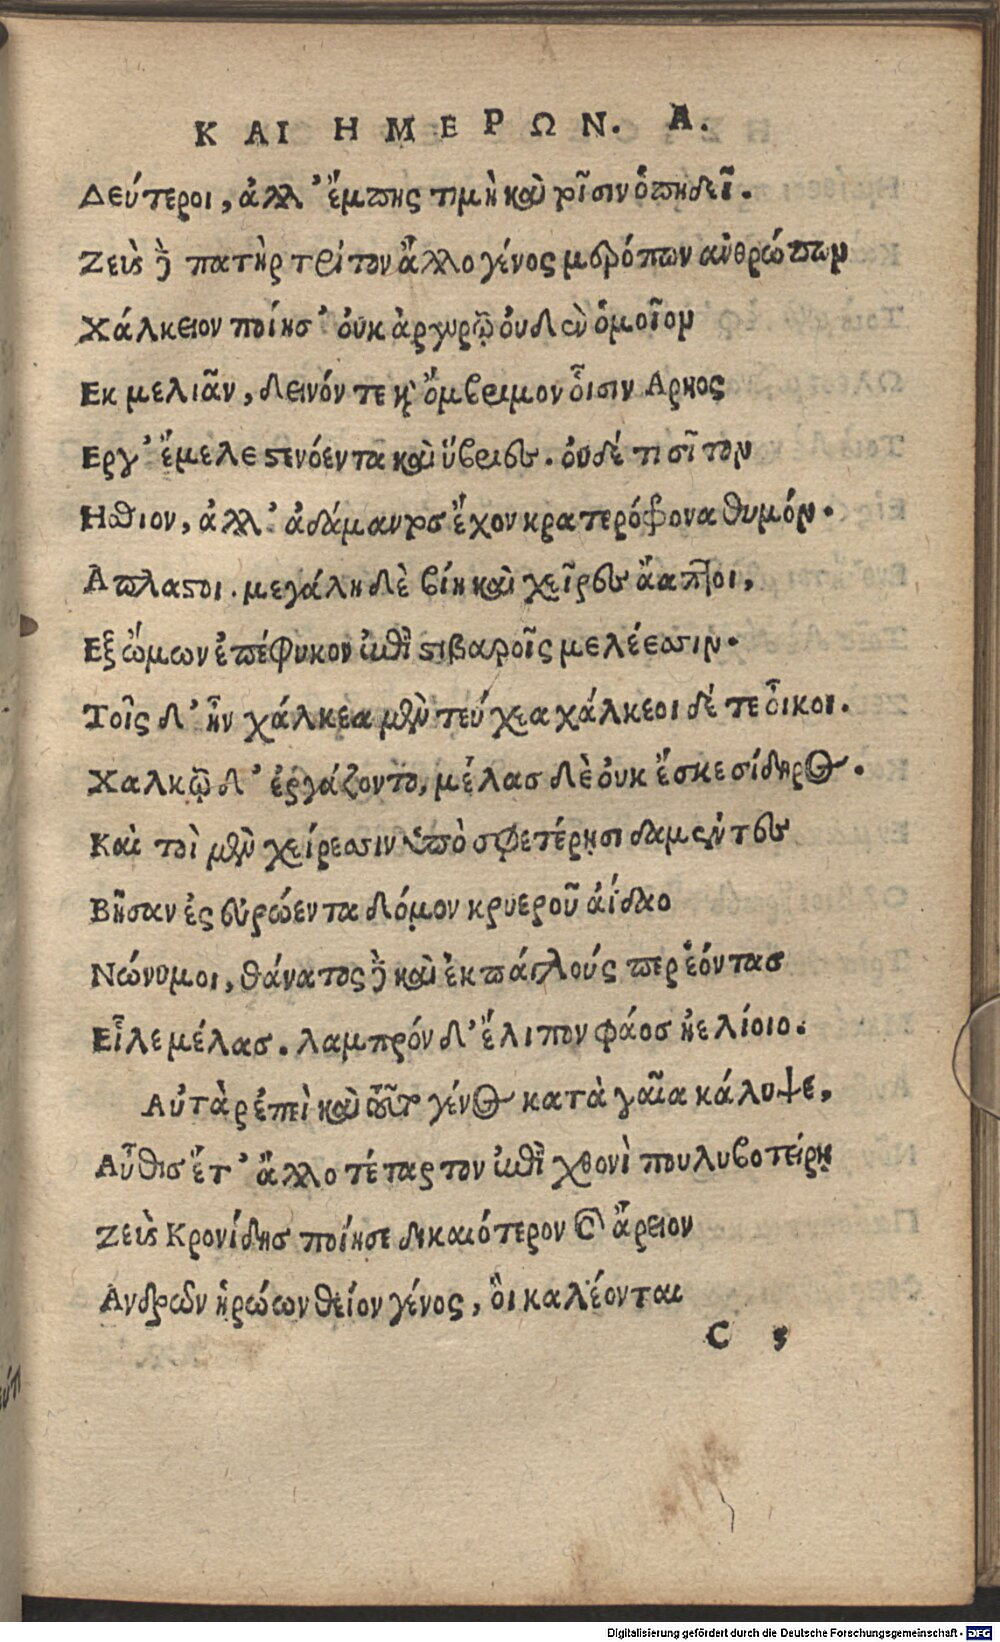 ΚΑΙ ΗΜΕΡΩΝ. Α.
Δεύτεροι, ἀλλ' ἔμπης τιμὴ καὶ τοῖσιν ὀπηδεῖ.
Ζεὺς δὲ πατὴρ τρίτον ἄλλο γένος μερόπων ἀνθρώπων
Χάλκειον ποίησ' ὀυκ ἀργυρῷ ὀυδὲν ὁμοῖον
Εκ μελιᾶν, δεινόν τε καὶ ὄμβριμον ὅισιν Αρηος
Εργ' ἔμελε στενόεντα καὶ ὕβριες. ὀυδέ τι σῖτον
Ηϑιον, ἀλλ' ἀδάμαντος ἔχον κρατερόφονα θυμόν.
Απλαστοι. μεγάλη δὲ βίη καὶ χεῖρες ἄαπτοι,
Εξ ὤμων ἐπέφυκον ἐπὶ στιβαροῖς μελέεσσιν.
Τοῖς δ' ἦν χάλκεα μὲν τεύχεα χάλκεοι δέ τε ὄικοι.
Χαλκῷ δ' ἐργάζοντο, μέλας δὲ ὀυκ ἔσκε σίδηρος.
Καὶ τοὶ μὲν χείρεσσιν ὑπὸ σφετέρῃσι δαμέντες
Βῆσαν ἐς εὐρώεντα δόμον κρυεροῦ ἀίδαο
Νώνυμοι, θάνατος δὲ καὶ ἐκπάγλούς περ ἐόντας
Εἷλε μέλας. λαμπρόν δ' ἔλιπον φάος ἠελίοιο.
Αὐτὰρ ἐπεὶ καὶ τοῦτο γένος κατὰ γαῖα κάλυψε,
Αὖθις ἔτ' ἄλλο τέταρτον ἐπὶ χθονὶ πουλυβοτείρῃ
Ζεὺς Κρονίδης ποίησε δικαιότερον καὶ ἄρειον
Ανδρῶν ἡρώων θείον γένος, ὃι καλέονται
C 5
Digitalisierung gefördert durch die Deutsche Forschungsgemeinschaft - DFG